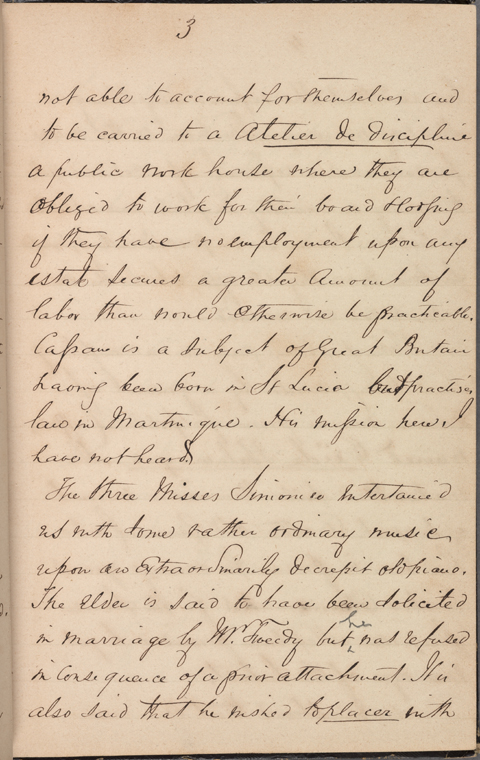 3
not able to account for themselves and
to be carried to a Atelier de discipline
a public work house where they are
obliged to work for their board & lodging
if they have no employment upon any
estat secures a greater Amount of
labor than would Otherwise be practicable.
Cassave is a subject of Great Britain
having been born in St Lucia but practises
law in Martinique. His mission here I
have not heard
The three Misses Simonise Intertained
us with some rather ordinary music
upon an Extraordinarily decrepit old piano.
The Elder is said to have been solicited
in marriage by Mr. Tweedy but her was refused
in consequence of a prior attachment. It is
also said that he wished to placer with